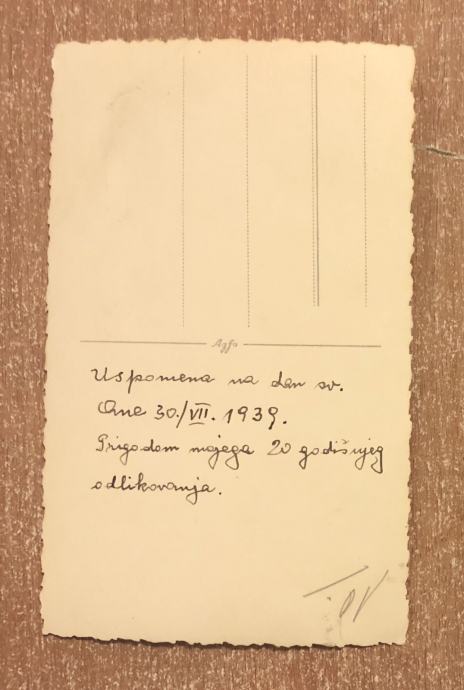 Agfa
Uspomena na dan sv.
Ane 30./VII. 1939.
Prigodom mojega 20 godišnjeg
odlikovanja.